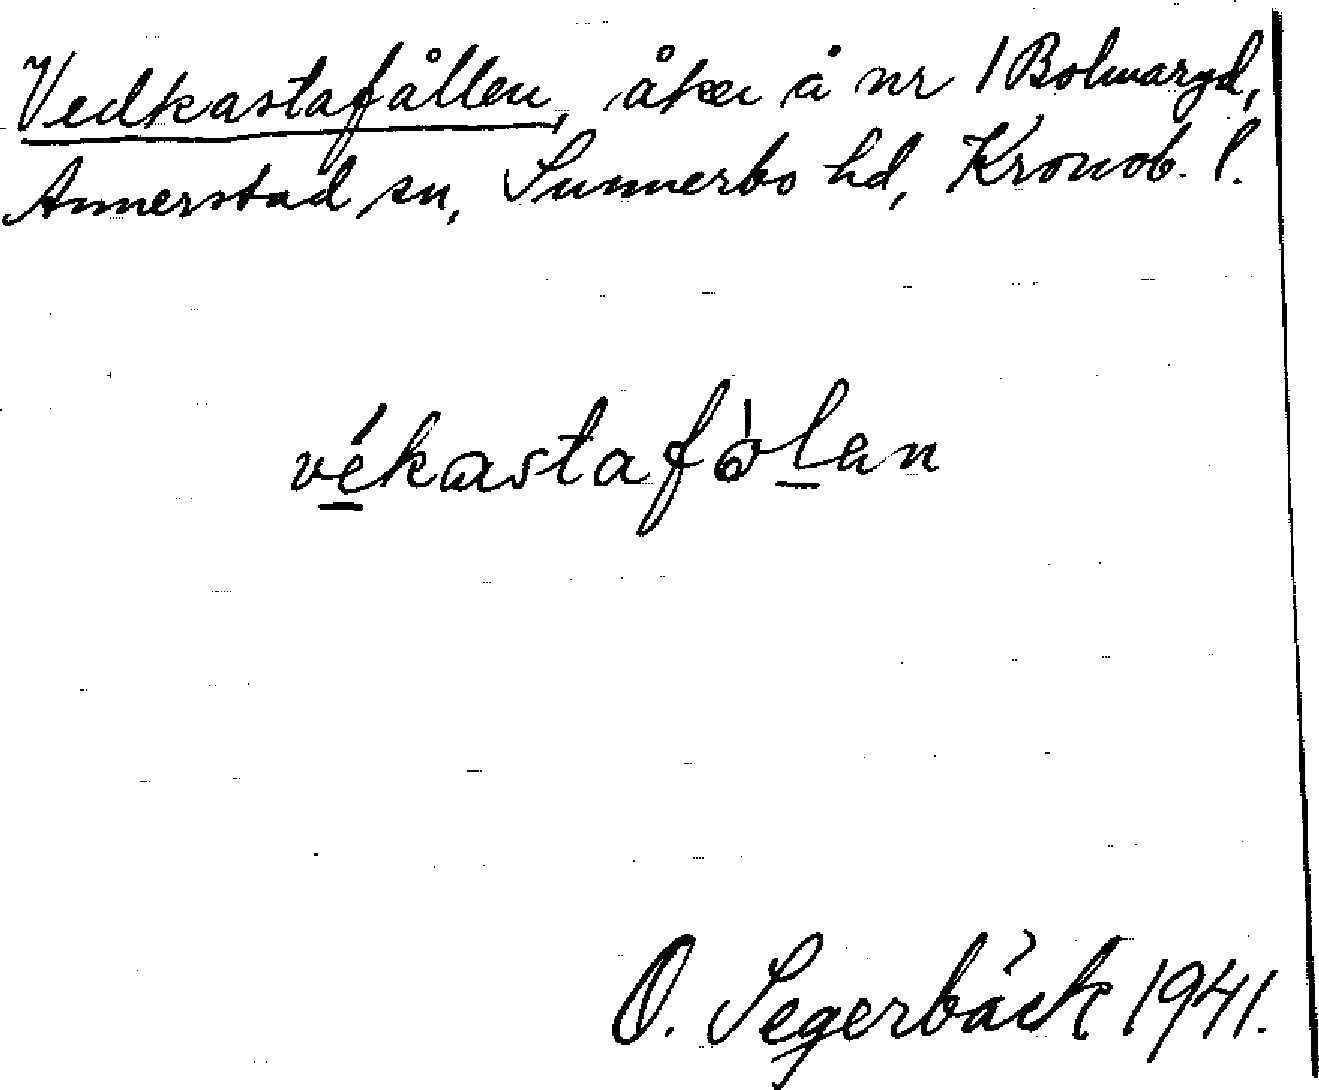 Vedkastafållen, åker å nr 1 Bolmaryd,
Annerstad sn, Sunnerbo hd, Kronob. l.
vékastafòlan
O. Segerbäck 1941.